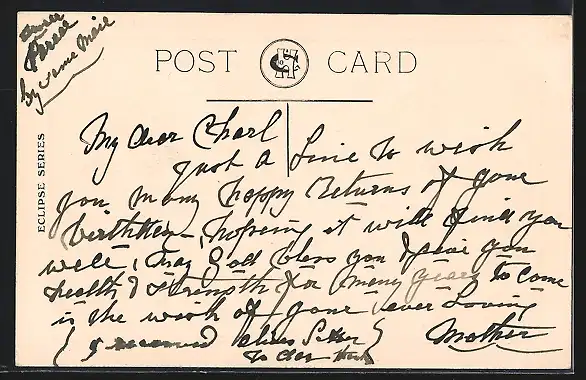 Parcel
by same mail
POST CARD
ECLIPSE SERIES
My dear Charl
just a Line to wish
you many happy Returns of your
birthday, hopeing it will find you
well, may God bless you & give you
health & strength for many years to come
is the wish of your ever Loving
Mother
I received